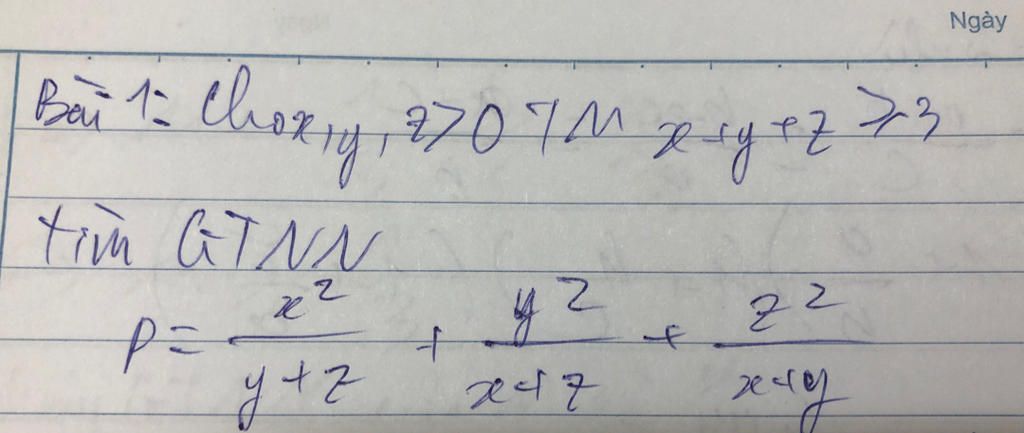 Ngày
Bài 1: Cho x, y, z > 0 TM x + y + z ≥ 3
tìm GTNN
P = x²/(y+z) + y²/(x+z) + z²/(x+y)